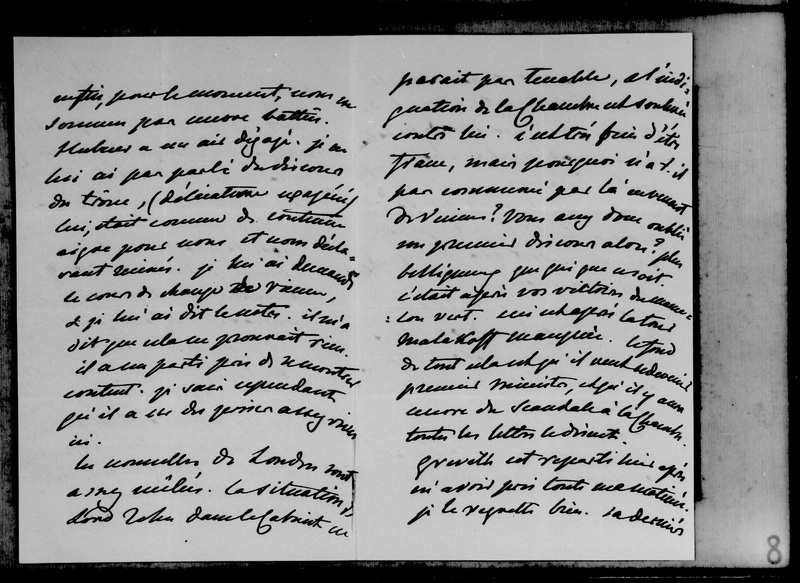 enfin, pour le moment, nous ne
sommes pas encore battus.
Hubner a un air dégagé. je ne
lui ai pas parlé du discours
du trône, (délicatesse exagérée)
lui, était comme de coutume
aigre pour nous et nous décla-
rant ruinés. je lui ai demandé
le cours de change de Vienne,
& je lui ai dit le notre. il m'a
dit que cela ne prouvait rien.
il a un parti pris de se montrer
content. je sais cependant
qu'il a eu des
ici.
les nouvelles de Londres sont
assez mêlées. la situation de
Lord John dans le Cabinet ne
parait pas tenable, a l'indi-
gnation de la Chambre est soulevée
contre lui. c'est très bien d'être
franc, mais pourquoi n'a-t-il
pas commencé par là en revenant
de Vienne? vous avez donc oublié
son premier discours alors? plus
belliqueux que qui que ce soit.
c'était après vos victoires du mame-
lon vert. ceci est après la tour
Malakoff manquée. le fond
de tout cela est qu'il veut redevenir
premier ministre, & qu'il y aura
encore du scandale à la Chambre.
toutes les lettres le disent.
Greville est reparti hier après
m'avoir pris toute ma matinée.
je le regrette bien. sa dernière
8